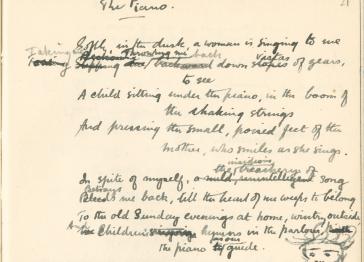 The Piano.
21
Softly, in the dusk, a woman is singing to me
Taking me back down vistas of years,
to see
A child sitting under the piano, in the boom of
the shaking strings
And pressing the small, poised feet of the
mother, who smiles as she sings.
In spite of myself, the insidious treachery of song
Betrays me back, till the heart of me weeps to belong
To the old Sunday evenings at home, winter outside
hymns in the parlour,
the piano guide.